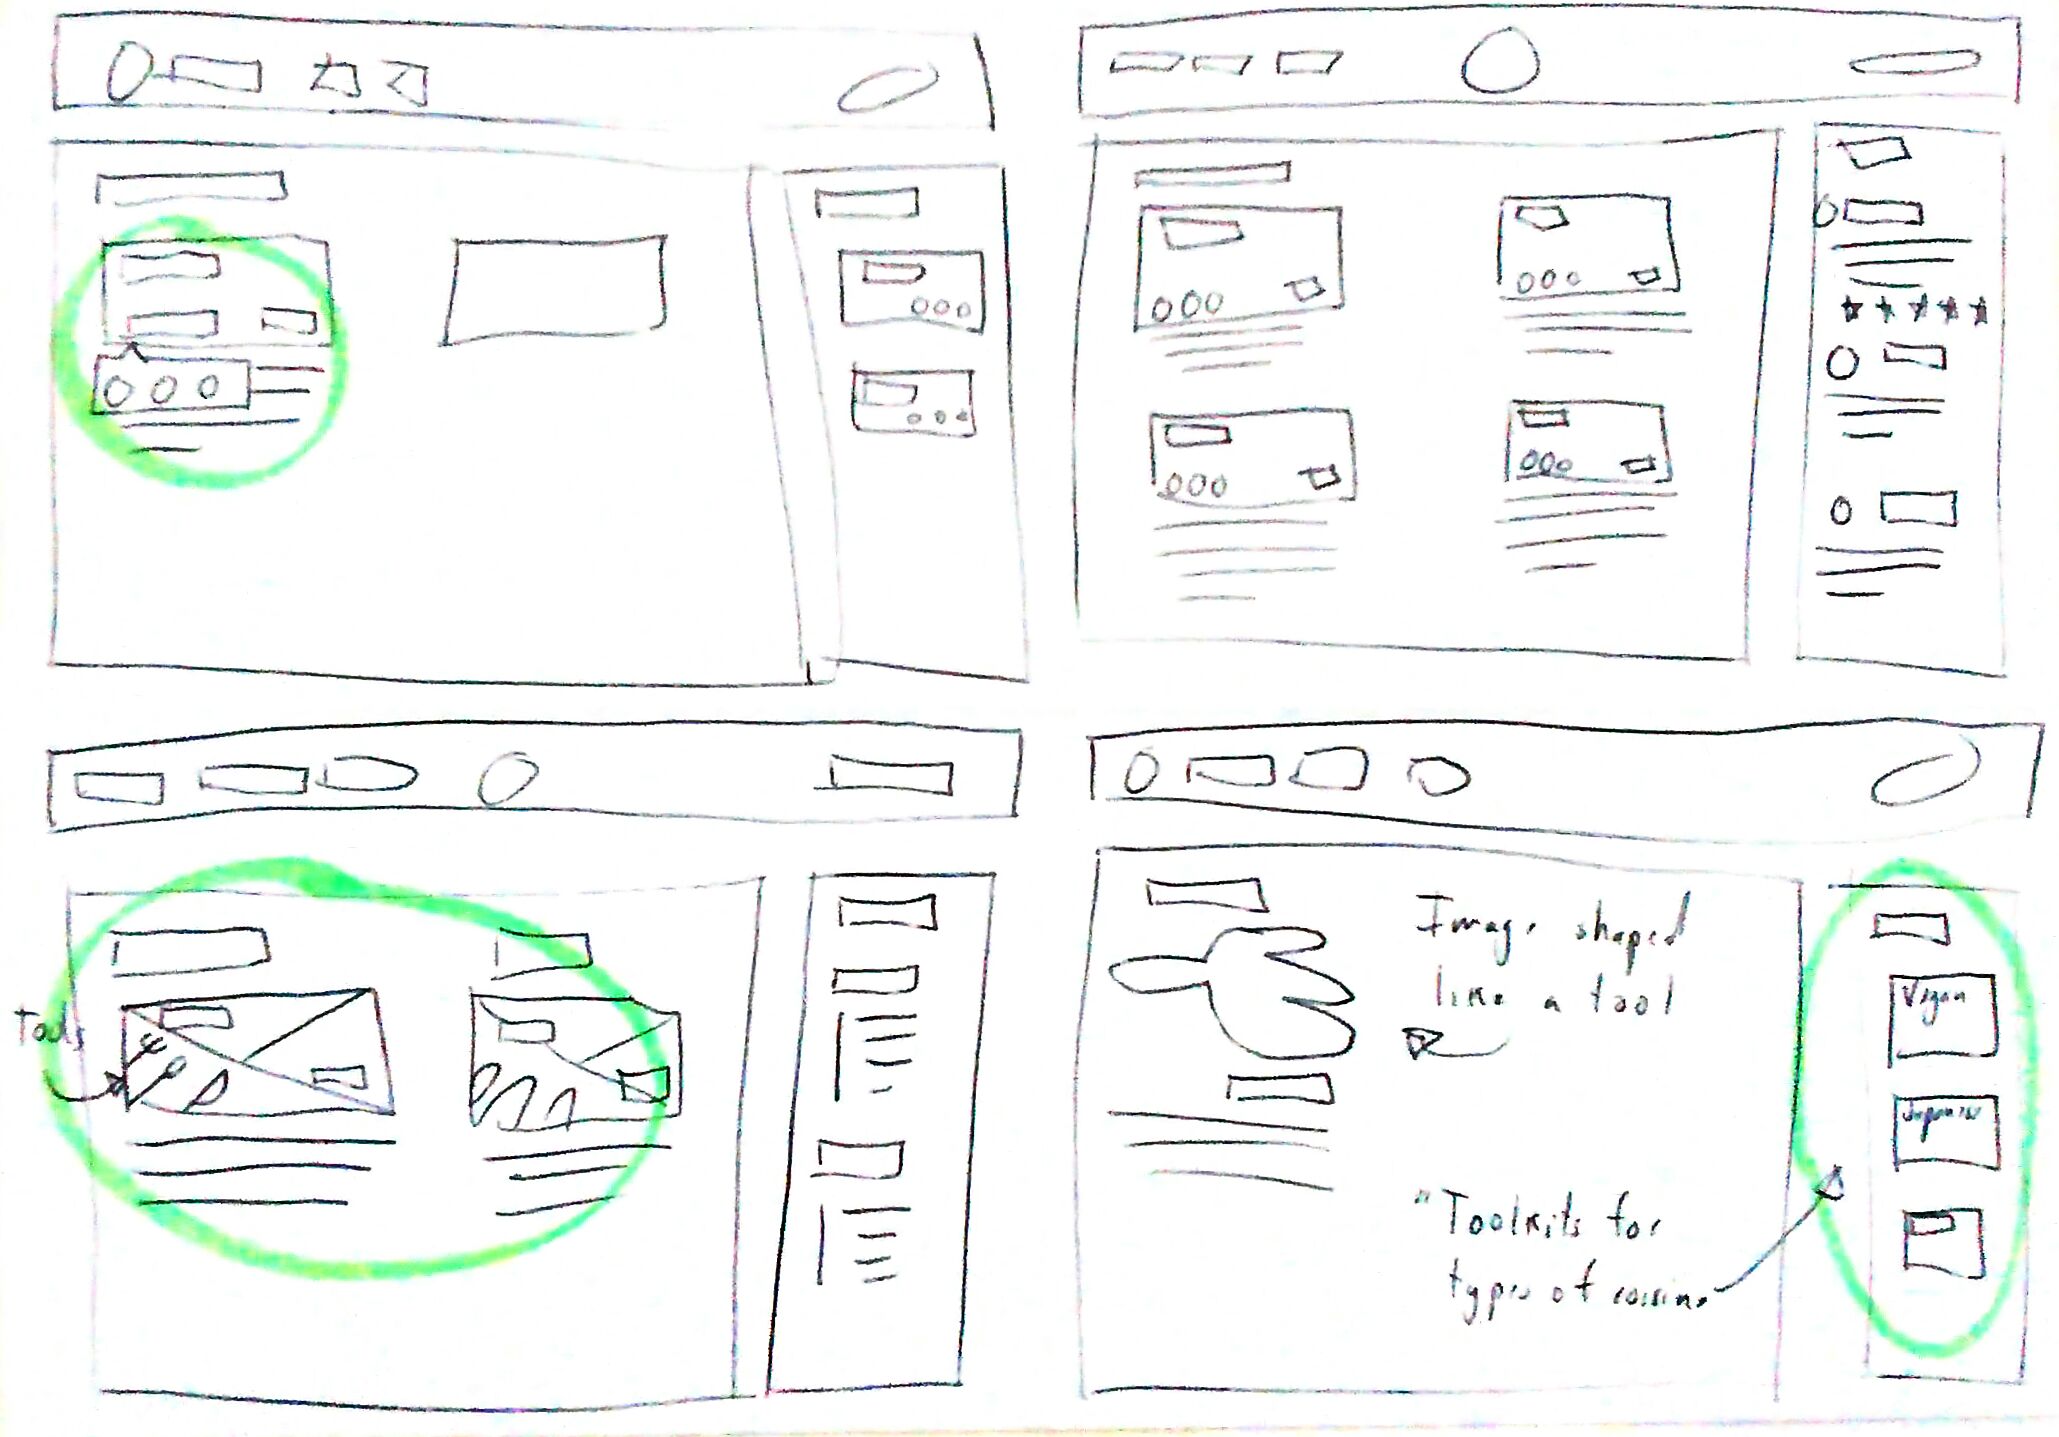 Tools
Image shaped
like a tool
Vegan
Japanese
"Toolkits for
types of cuisine